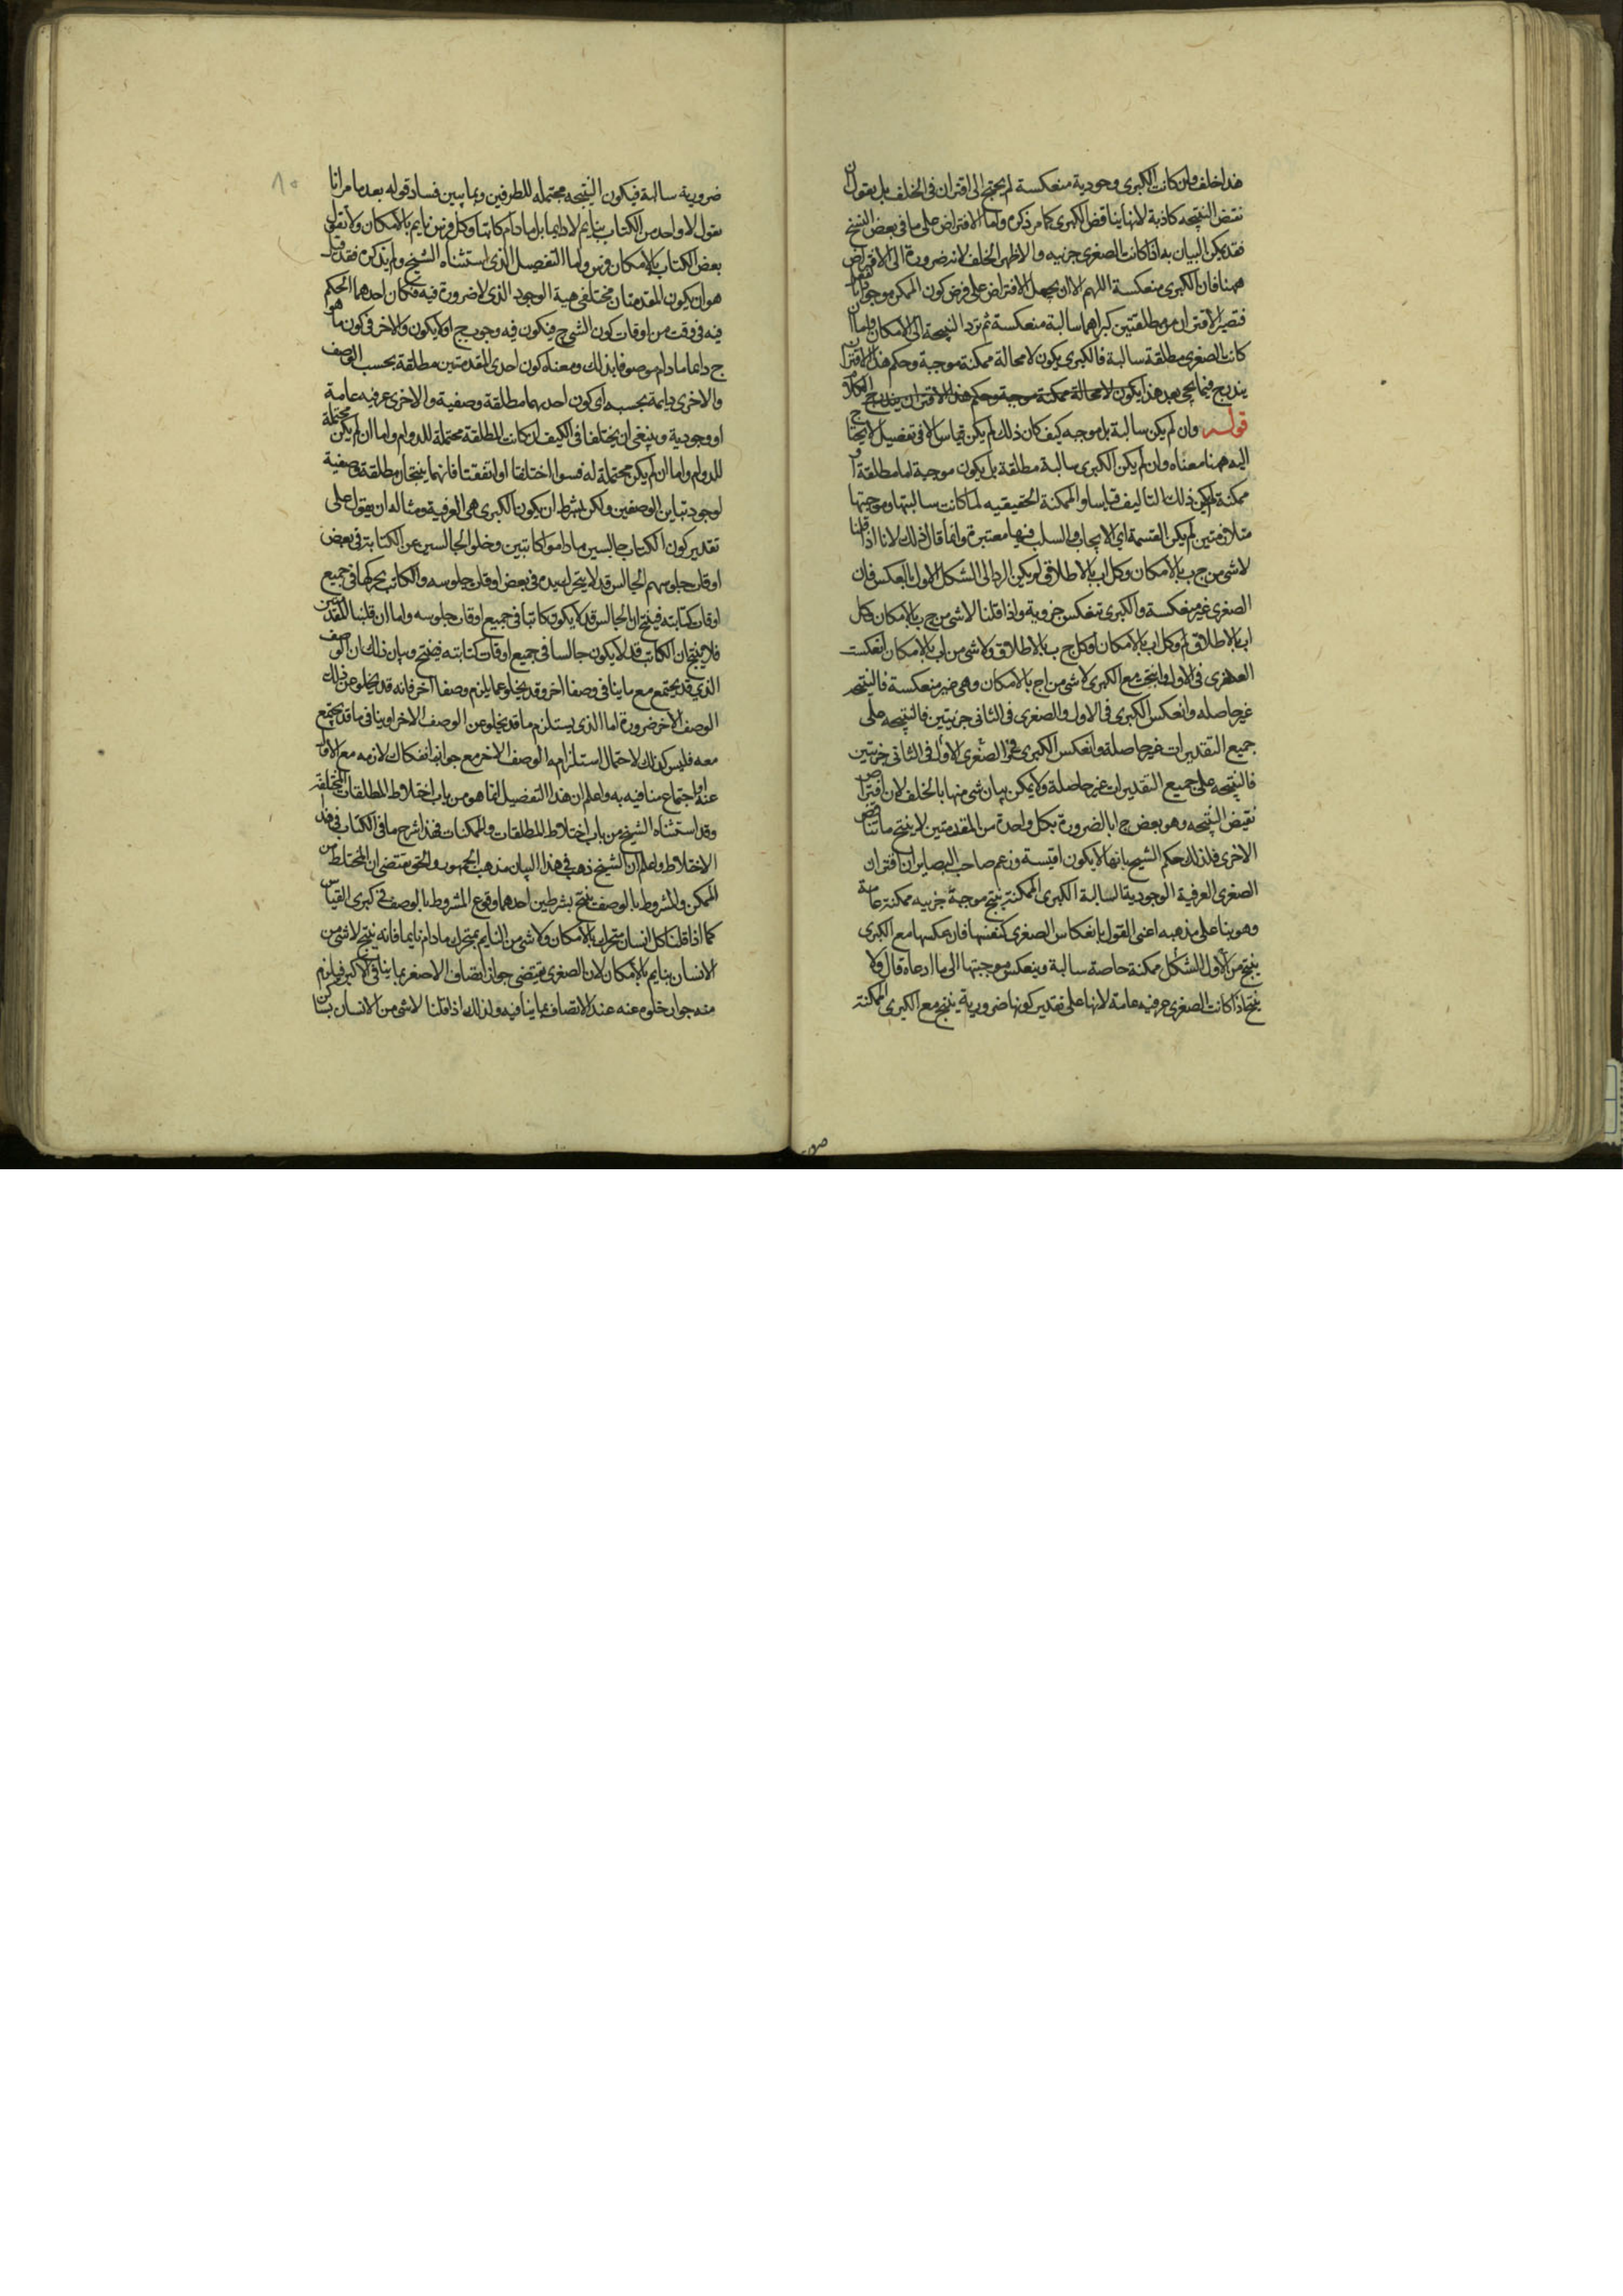 هذا خلف وان كانت الكبرى وجودية منعكسة لم يحتج الى اقتران فى الخلف بل يقول ان
نقيض النتيجه كاذبة لانها يناقض الكبرى كما مر ذكره واما الافتراض على ما فى بعض النسخ
فقد يمكن البيان به اذا كانت الصغرى جزييه والاظهر الخلف لانه ضرورة الى الافتراض
ههنا فان الكبرى منعكسة اللهم الا ان يجعل الافتراض على فرض كون الممكن موجودا بالفعل
فتصير الاقتران من مطلقتين كبراهما سالبة منعكسة ثم ترد النتيجة الى الامكان واما ان
كانت الصغرى مطلقة سالبة فالكبرى يكون لا محالة ممكنة موجبة وحكم هذا الاقتران
يندرج فيما يجى بعد هذا يكون لا محالة ممكنة موجبة وحكم هذا الاقتران يندرج
قوله وان لم يكن سالبة بل موجبه كيف كان ذلك لم يكن قياس الا فى تفصيل لا يحتاج
اليه ههنا معناه وان لم يكن الكبرى سالبة مطلقة بل يكون موجبة اما مطلقة او
ممكنة لم يكن ذلك التاليف قياسا والممكنة الحقيقيه لما كانت سالبتها وموجبتها
متلازمتين لم يكن القسمة اى الايجاب والسلب فيها معتبرة وانما قال ذلك لانا اذا قلنا
لا شى من ج ب بالامكان وكل اب بالاطلاق لم يكن الرد الى الشكل الاول بالعكس فان
الصغرى غير منعكسة والكبرى تنعكس جزوية واذا قلنا لا شى من ج ب بالامكان وكل
اب بالاطلاق او كل اب بالامكان او كل ج ب بالاطلاق ولا شى من اب بالامكان انعكست
الصغرى فى الاول وانتجت مع الكبرى لا شى من اج بالامكان وهى غير منعكسة فالنتيجه
غير حاصله وانعكس الكبرى فى الاول والصغرى فى الثانى جزئيتين فالنتيجه على
جميع التقديرات غير حاصلة وانعكس الكبرى فى الصغرى الاول فى الثانى جزئيتين
فالنتيجه على جميع التقديرات غير حاصلة ولا يمكن بيان شى منها بالخلف لان اقتران
نقيض النتيجه وهو بعض ج ا بالضرورة بكل واحدة من المقدمتين لا ينتج ما يناقض
الاخرى فلذلك حكم الشيخ بانها لا يكون اقيسة وزعم صاحب البصاير ان اقتران
الصغرى العرفية الوجودية السالبة الكبرى الممكنة ينتج موجبة جزييه ممكنة عامة
وهو بنا على مذهبه اعنى القول بانعكاس الصغرى كنفسها فان عكسها مع الكبرى
ينتج من الاول للشكل ممكنة خاصة سالبة وينعكس موجبتها الى ما ادعاه قال ولا
ينتج اذا كانت الصغرى عرفيه عامة لانها على تقدير كونها ضرورية ينتج مع الكبرى الممكنة
ضرورية سالبة فيكون النتيجه محتمله للطرفين وبما يبين فساد قوله بعد ما مر انا
نقول لا واحد من الكتاب بنايم لا دايما بل ما دام كاتبا وكل فرس نايم بالامكان ولا نقول
بعض الكتاب بالامكان فرس واما التفصيل الذى استثناه الشيخ ولم يذكره فقد قيل
هو ان يكون المقدمتان مختلفى جهة الوجود الذى لا ضرورة فيه فكان احدهما الحكم
فيه فى وقت من اوقات كون الشى ج فيكون فيه وجوب ج او لا يكون والاخر فى كون ما هو
ج دايما ما دام موصوفا بذلك ومعناه كون احدى المقدمتين مطلقة بحسب الوصف
والاخرى دايمة بحسبه اى كون احديهما مطلقة وصفية والاخرى عرفيه عامة
او وجودية وينبغى ان يختلفا فى الكيف ان كانت المطلقة محتملة للدوام واما ان لم يكن محتملة
للدوام واما ان لم يكن محتملة له فسوا اختلفتا او اتفقتا فانهما ينتجان مطلقة وصفية
لوجود تباين الوصفين ولكن بشرط ان يكون الكبرى هى العرفية ومثاله ان يقول على
تقدير كون الكتاب جالسين ما داموا كاتبين وخلو الجالسين عن الكتابة فى بعض
اوقات جلوسهم الجالس قد لا يتحرك يده فى بعض اوقات جلوسه والكاتب يحركها فى جميع
اوقات كتابته فينتج ان الجالس قد لا يكون كاتبا فى جميع اوقات جلوسه واما ان قلبنا المقدمتين
فلا ينتج ان الكاتب قد لا يكون جالسا فى جميع اوقات كتابته فينتج وبيان ذلك ان الوصف
الذى قد يجتمع مع ما ينافى وصفا اخر وقد يخلو عما يلزم وصفا اخر فانه قد يخلو عن ذلك
الوصف الاخر ضرورة اما الذى يستلزم ما قد يخلو عن الوصف الاخر او ينافى ما قد يجتمع
معه فليس كذلك لاحتمال استلزامه الوصف الاخر مع جواز انفكاك لازمه مع الاول
عنه او اجتماع منافيه به واعلم ان هذا التفصيل انما هو من باب اختلاط المطلقات المختلفة
وقد استثناه الشيخ من باب اختلاط المطلقات والممكنات فهذا شرح ما فى الكتاب فى هذا
الاختلاط واعلم ان الشيخ ذهب فى هذا البيان مذهب الجمهور والحق يقتضى ان المختلط من
الممكن والمشروط بالوصف ينتج بشرطين احدهما وقوع المشروط بالوصف فى كبرى القياس
كما اذا قلنا كل انسان متحرك بالامكان ولا شى من النايم بمتحرك ما دام نايما فانه ينتج لا شى من
الانسان بنايم بالامكان لان الصغرى يقتضى جواز اتصاف الاصغر بما ينافى الاكبر فيلزم
منه جواز خلوه عنه عند الاتصاف بما ينافيه ولذلك اذا قلنا لا شى من الانسان بساكن